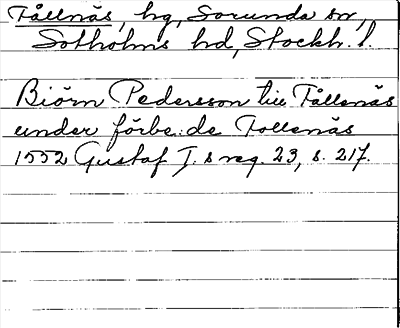 Fållnäs, hg, Sorunda sn,
Sotholms hd, Stockh. l.
Biörn Pedersson till Fållnäs
under förbe:de Follenäs
1552 Gustaf I.s reg. 23, s. 217.